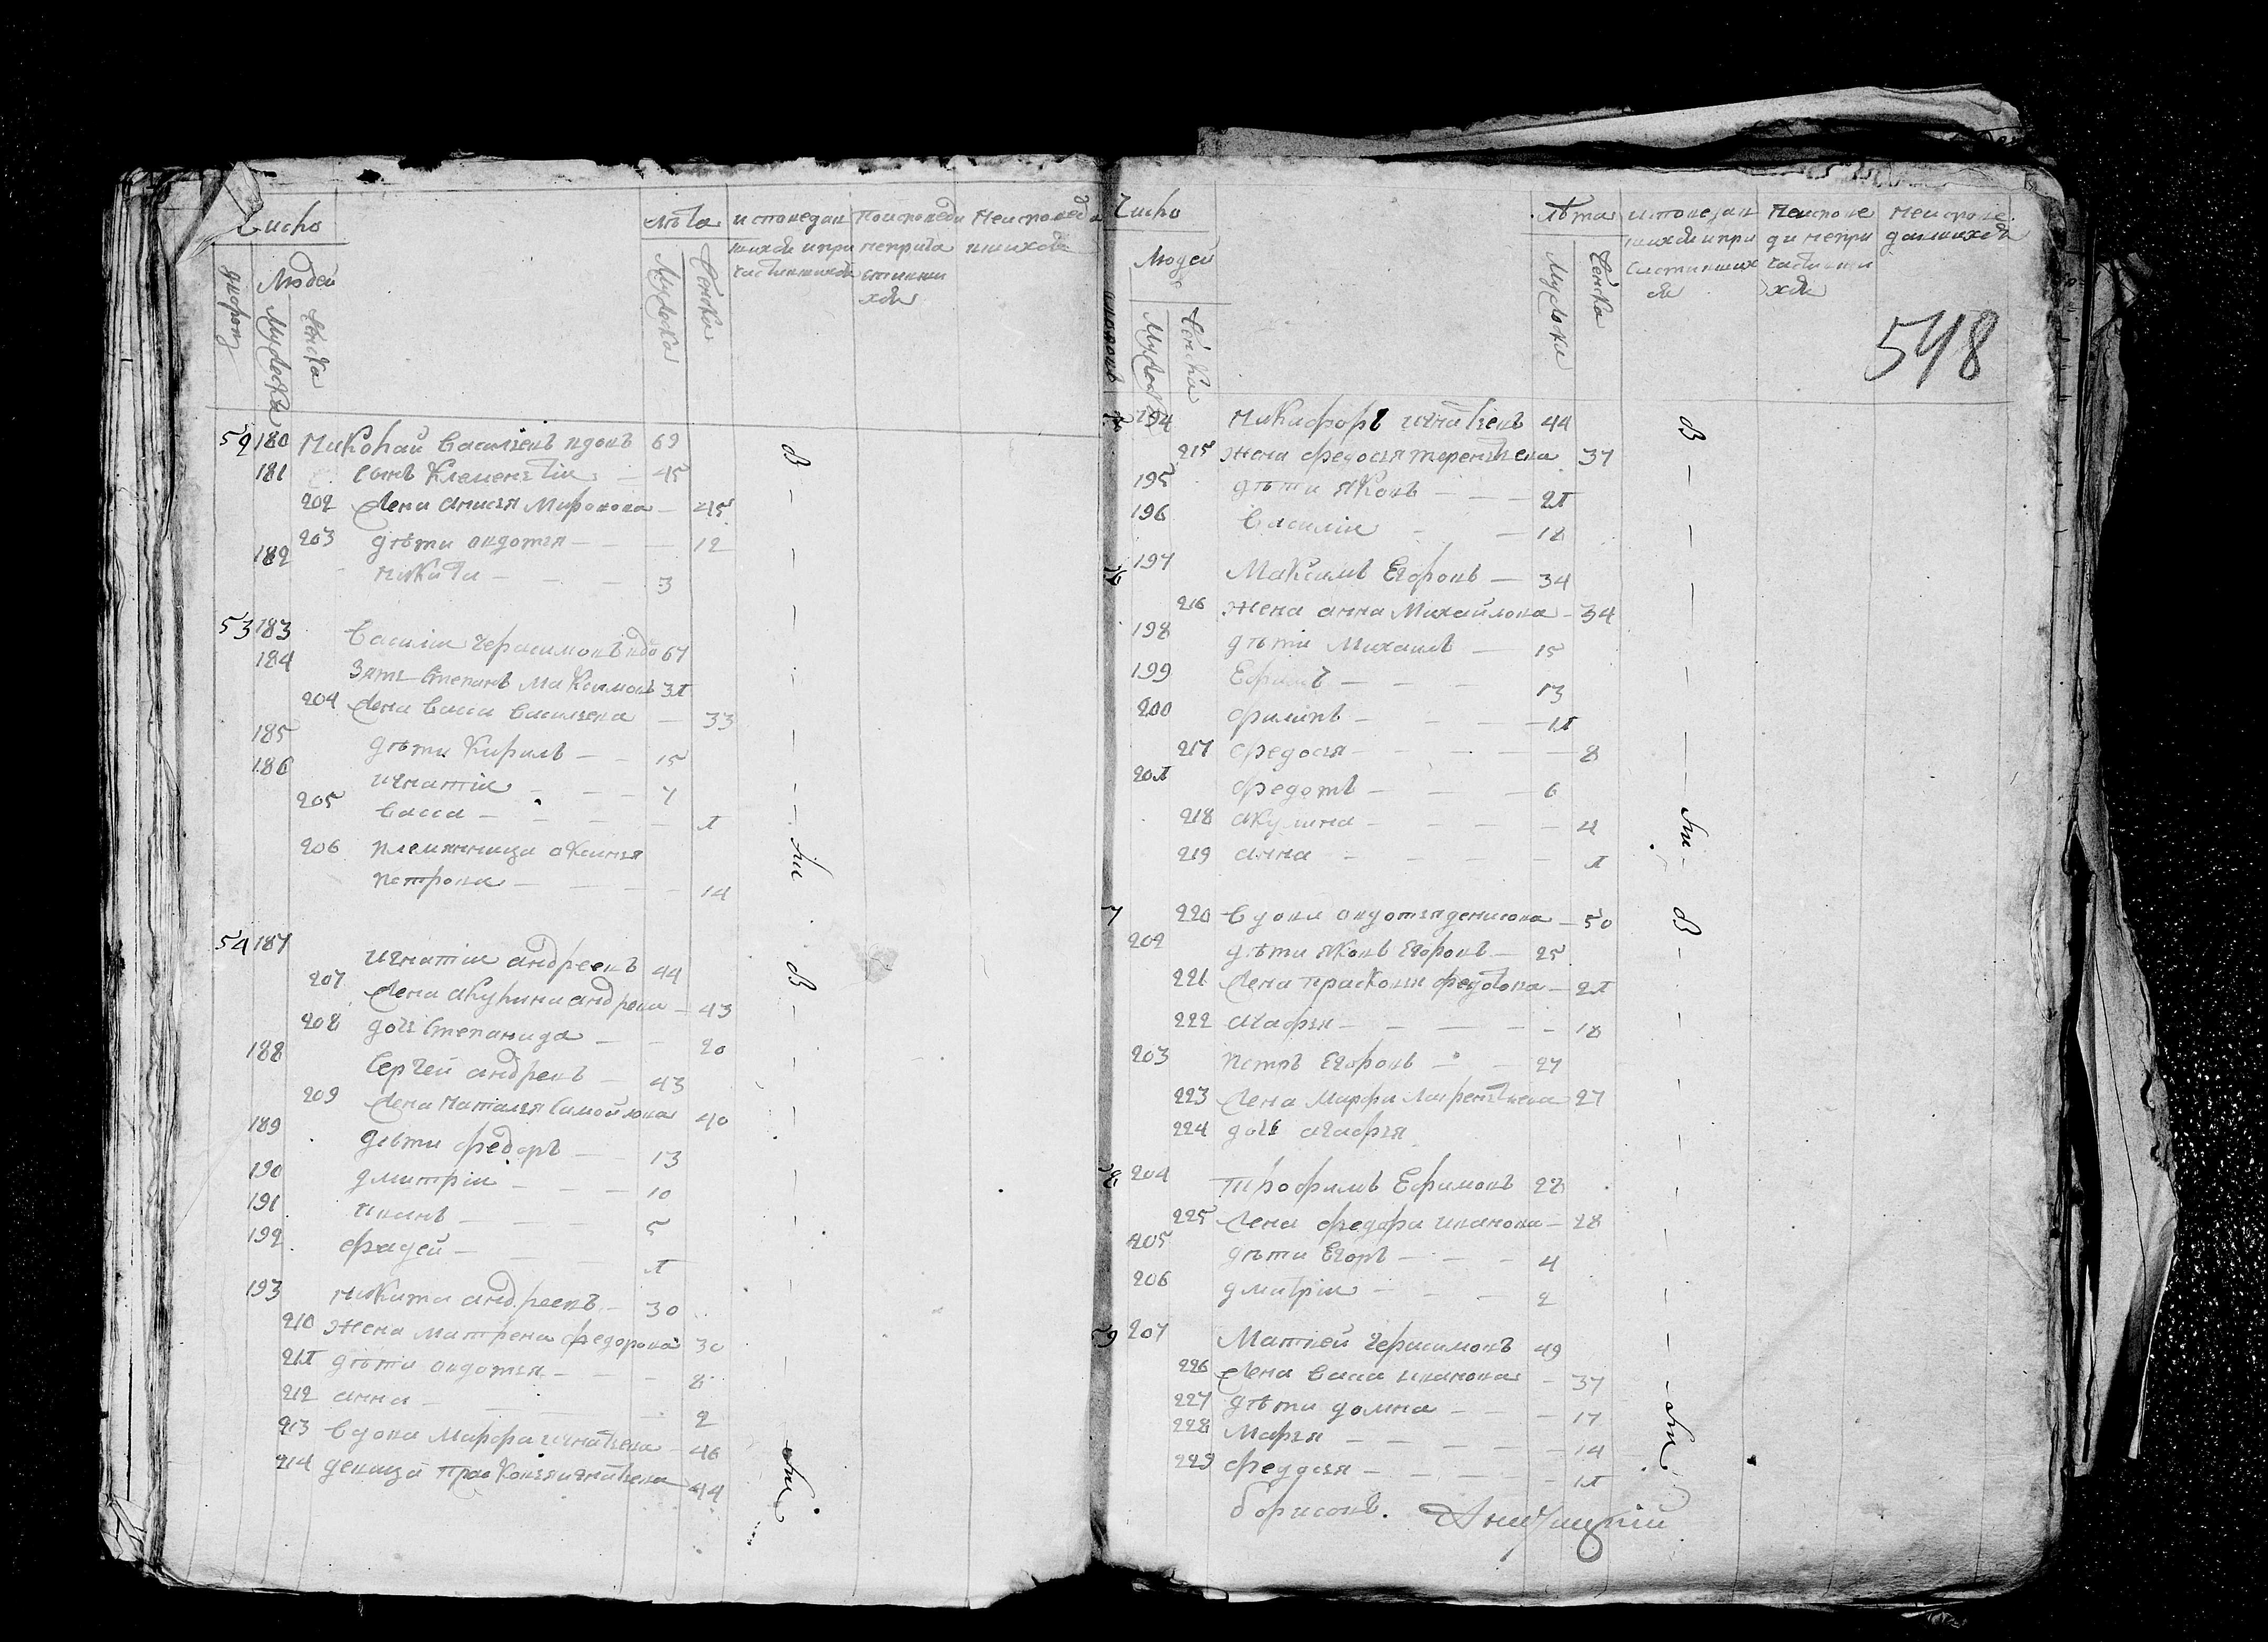 Число
Людей
дворовъ
Мужеска
Женска
Лѣта
Мужеска
Женска
исповедав
шихся и при
частившихся
По исповеди
не прича
стивши
хся
Не исповеда
вшихся
52 180 Николай Васильевъ вдовъ 69
181 Сынъ Клементий — 45
202 Жена Анисья Миронова — 45
203 дѣти Авдотья — — — 12
182 Никита — — — 3
53 183 Василий Герасимовъ вдо 67
184 Зять Степанъ Максимовъ 31
204 Жена Васса Васильева — 33
185 дѣти Кирилъ — — 15
186 Игнатий — — — 7
205 Васса — — — — 1
206 племянница Аксинья
Петрова — — — — 14
54 187 Игнатий Андреевъ 44
207 Жена Акулина Андрева — 43
208 дочь Степанида — — 20
188 Сергей Андревъ — 43
209 Жена Наталья Самойлова 40
189 дѣти Федоръ — — 13
190 Дмитрий — — — 10
191 Иванъ — — — 5
192 Фадей — — — 1
193 Никита Андреевъ — 30
210 Жена Матрена Федорова 30
211 дѣти Авдотья — — — 8
212 Анна — — 2
213 Вдова Марфа Игнатьева — 46
214 девица Прасковья Игнатьева — 44
В
ѣи
В
ѣи
Число
Людей
Мужеска
Женска
Лѣта
Мужеска
Женска
исповедав
шихся и при
частивших
ся
Не испове
ди не при
частивши
хся
Не испове
давшихся
548
194 Никифоръ Игнатьевъ 44
215 Жена Федосья Терентьева 37
195 дѣти Яковъ — — — 21
196 Василий — — 18
197 Максимъ Егоровъ — 34
216 Жена Анна Михайлова — 34
198 дѣти Михаилъ — 15
199 Ефимъ — — — 13
200 Филипъ — — — — 11
217 Федосья — — — — 8
201 Федотъ — — — 6
218 Акулина — — — — 4
219 Анна — — — — 1
7 220 Вдова Авдотья Денисова — 50
202 дѣти Яковъ Егоровъ — 25
221 Жена Прасковья Федотова — 21
222 Агафья — — — — 18
203 Петръ Егоровъ — — 27
223 Жена Марфа Лаврентьева 27
224 дочь Агафья
8 204 Трофимъ Ефимовъ 28
225 Жена Федора Иванова — 28
205 дѣти Егоръ — — — 4
206 Дмитрий — — — 2
59 207 Матвей Герасимовъ 49
226 Жена Васса Иванова — 37
227 дѣти Домна — — — 17
228 Марья — — — — 14
229 Федосья — — — — 11
Борисовъ.
В
ѣи
В
ѣи